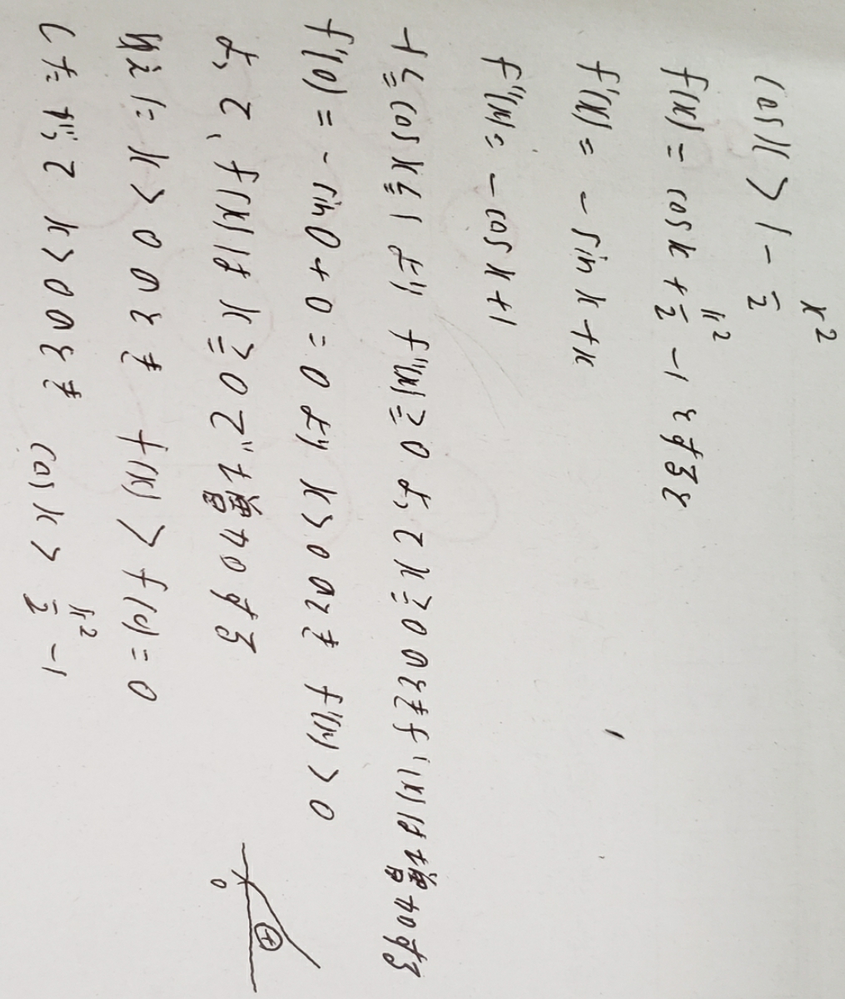 cos x > 1 - x²/2
f(x) = cos x + x²/2 - 1 とする
f'(x) = - sin x + x
f''(x) = - cos x + 1
-1 ≦ cos x ≦ 1 より f''(x) ≧ 0 よって x ≧ 0 のとき f'(x) は増加する
f'(0) = - sin 0 + 0 = 0 より x > 0 のとき f'(x) > 0
よって、f(x) は x ≧ 0 で増加する
ゆえに x > 0 のとき f(x) > f(0) = 0
したがって x > 0 のとき cos x > x²/2 - 1
0
+